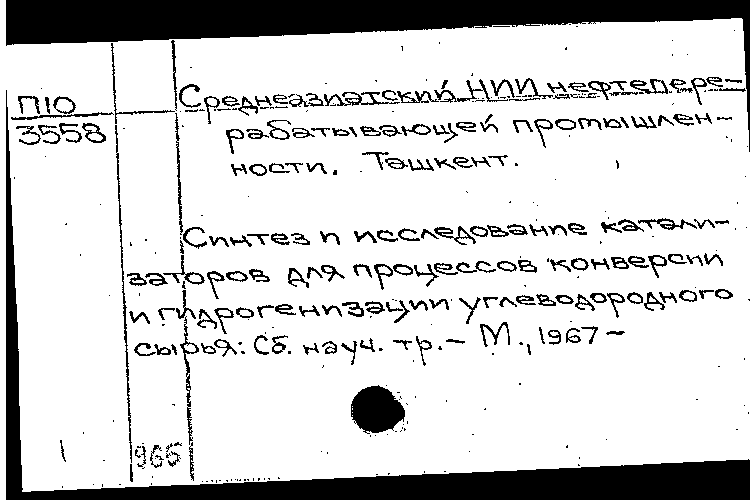 П10
3558
Среднеазиатский НИИ нефтепере-
рабатывающей промышлен-
ности. Ташкент.
Синтез и исследование катали-
заторов для процессов конверсии
и гидрогенизации углеводородного
сырья: Сб. науч. тр. - М., 1967 -
966